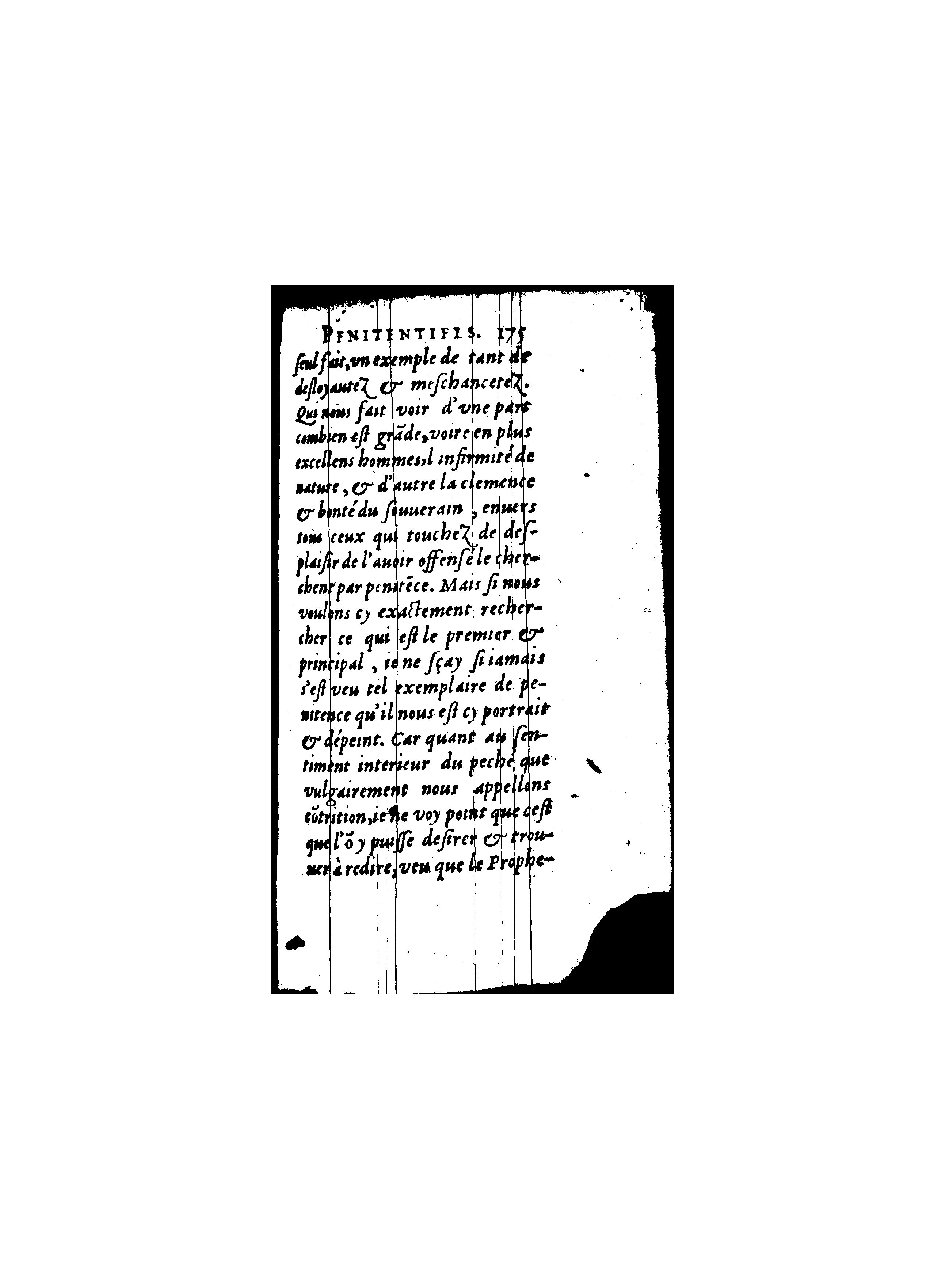 PENITENTIELS. 175
ſeul fait, vn exemple de tant de
deſloyautez & meſchancetez.
Qui nous fait voir d'vne part
combien eſt grãde, voire en plus
excellens hommes, l'infirmité de
nature, & d'autre la clemence
& bonté du ſouuerain, enuers
tous ceux qui touchez de deſ-
plaiſir de l'auoir offenſé le cher-
chent par penitẽce. Mais ſi nous
voulons cy exactement recher-
cher ce qui eſt le premier &
principal, ie ne ſçay ſi iamais
s'eſt veu tel exemplaire de pe-
nitence qu'il nous eſt cy portrait
& dépeint. Car quant au ſen-
timent interieur du peché que
vulgairement nous appellons
cõtrition, ie ne voy point que c'eſt
que l'õ y puiſſe deſirer & trou-
uer à redire, veu que le Prophe-